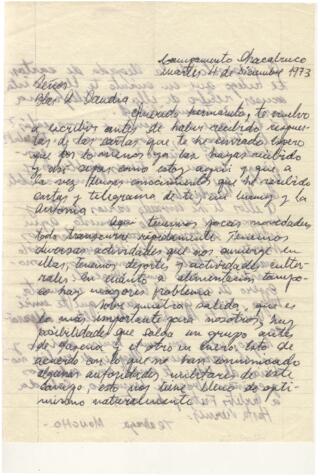 Campamento Chacabuco
martes 4 de diciembre 1973
Señor
Querido hermanito, te vuelvo
a escribir antes de haber recibido respues
ta de las cartas que te he enviado. Espero
que por lo menos ya las hayas recibido
y así sepas como estoy aquí y que a
la vez tienes conocimiento que he recibido
cartas y telegrama de ti, mi mamy y la
Antonia.
Aquí tenemos pocas novedades,
todo transcurre rápidamente. Tenemos
diversas actividades que nos
ellas, tenemos deportes y actividades cultu
rales. En cuanto a alimentación tampo
co hay mayores problemas.
Sobre nuestra salida, que es
lo más importante para nosotros, hay
posibilidades que salga un grupo antes
de pascua y el otro en enero. Esto de
acuerdo con lo que nos han comunicado
algunas autoridades militares de este
campo, esto nos tiene llenos de opti-
mismo naturalmente.